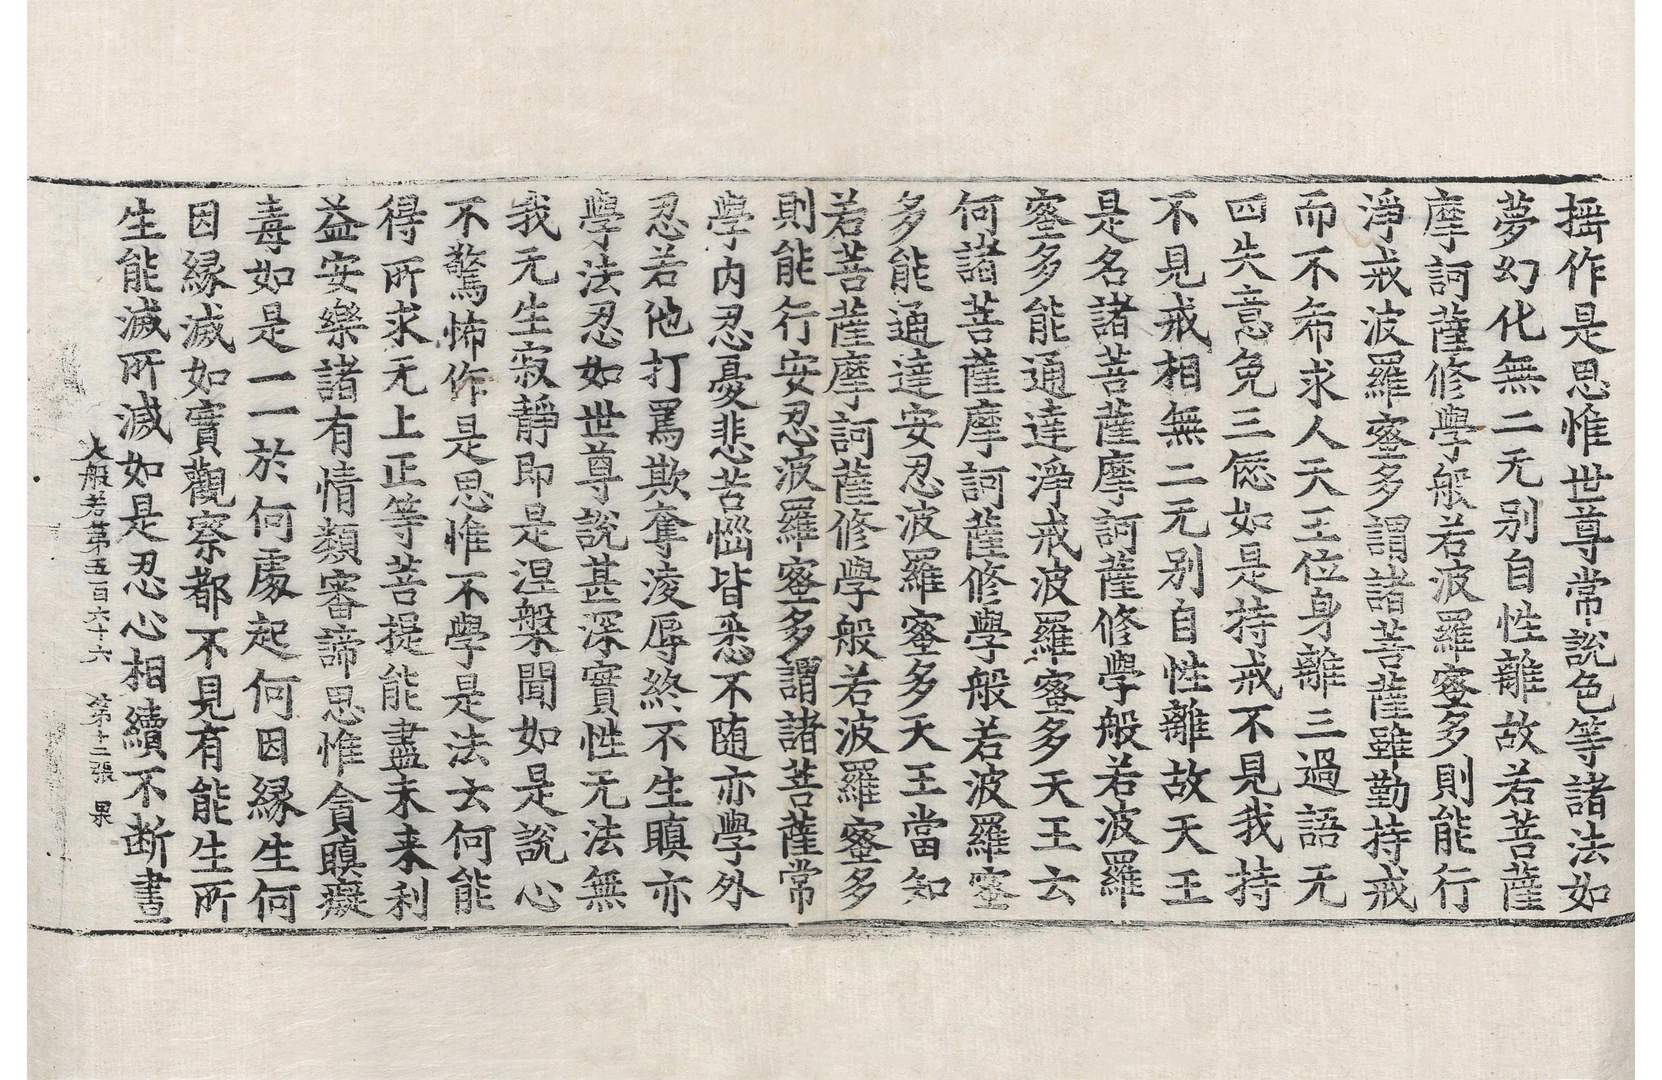 搖作是思惟世尊常說色等諸法如
夢幻化無二无别自性離故若菩薩
摩訶薩修學般若波羅蜜多則能行
淨戒波羅蜜多謂諸菩薩雖勤持戒
而不希求人天王位身離三過語无
四失意免三𠍴如是持戒不見我持
不見戒相無二无别自性離故天王
是名諸菩薩摩訶薩修學般若波羅
蜜多能通達淨戒波羅蜜多天王云
何諸菩薩摩訶薩修學般若波羅蜜
多能通達安忍波羅蜜多天王當知
若菩薩摩訶薩修學般若波羅蜜多
則能行安忍波羅蜜多謂諸菩薩常
學内忍憂悲苦惱皆悉不随亦學外
忍若他打罵欺奪淩辱終不生瞋亦
學法忍如世尊說甚深實性无法無
我无生寂靜即是涅槃聞如是說心
不驚怖作是思惟不學是法云何能
得所求无上正等菩提能盡未来利
益安樂諸有情類審諦思惟貪瞋癡
毒如是一一於何處起何因縁生何
因縁滅如實觀察都不見有能生所
生能滅所滅如是忍心相續不断晝
大般若第五百六十六 第十二張 果